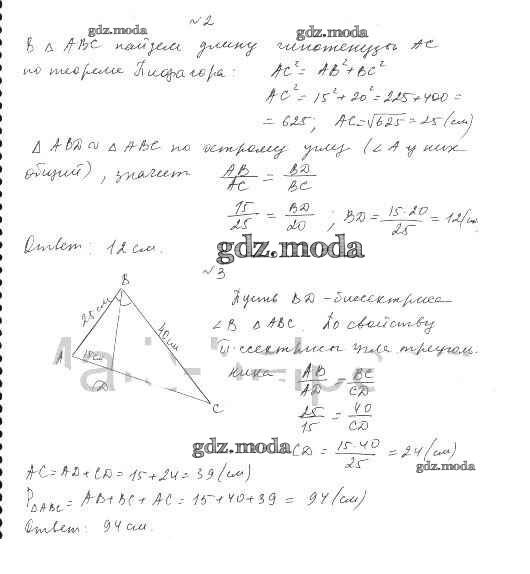 №2
gdz.moda gdz.moda
В △ ABC найдем длину гипотенузы AC
по теореме Пифагора: AC² = AB² + BC²
AC² = 15² + 20² = 225 + 400 =
= 625; AC = √625 = 25 (см)
△ ABD ~ △ ABC по острому углу (∠A у них
общий), значит AB/AC = BD/BC
15/25 = BD/20; BD = 15·20/25 = 12 (см.
Ответ: 12 см.
gdz.moda
№3
B
25 см
40 см
A
15 см
D
C
Пусть BD - биссектриса
∠B △ ABC. По свойству
биссектрисы угла треугол.
ника AB/AD = BC/CD
25/15 = 40/CD
gdz.moda CD = 15·40/25 = 24 (см)
gdz.moda
AC = AD + CD = 15 + 24 = 39 (см)
P△ABC = AB + BC + AC = 15 + 40 + 39 = 94 (см)
Ответ: 94 см.